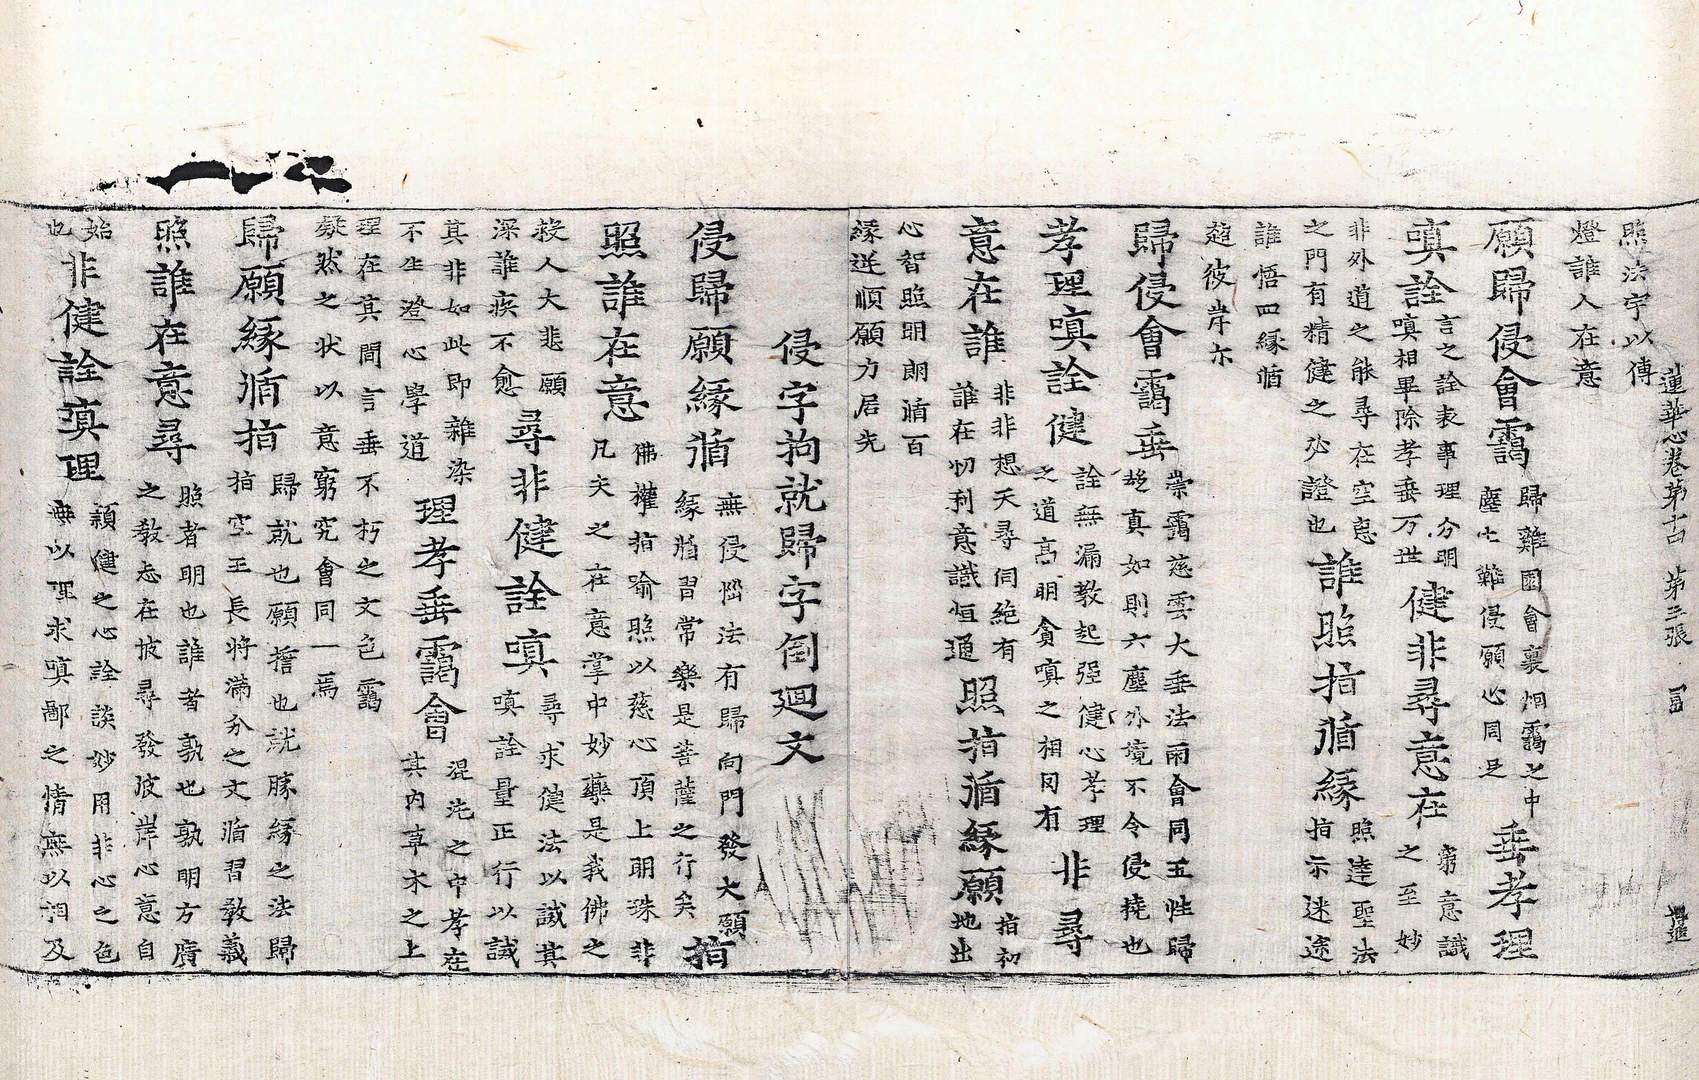 照法宇以傳
燈誰人在意
蓮華心卷第十四 第三張 冒
願歸侵會靄 歸難國會裏烟靄之中
塵七難侵願心同足 垂孝理
嗔詮 言之詮表事理分明
嗔相畢除孝垂万世 健非尋意在 窮意識
之至妙
非外道之能尋在空忽
之門有精健之必證也 誰照指循緣 照達聖法
指示迷途
誰悟四緣循
超彼岸尒
歸侵會靄垂 崇靄慈雲大垂法雨會同五性歸
趍真如則六塵外境不令侵撓也
孝理嗔詮健 詮無漏教起强健心孝理
之道高明貪嗔之相罔有 非尋
意在誰 非非想天尋伺絶有
誰在忉利意識恒通 照指循緣願 指初
地出
心智照明朗循百
緣逆順願力居先
侵字拘就歸字倒廻文
侵歸願緣循 無侵惱法有歸向門發大願
緣循習常樂是菩薩之行矣 指
照誰在意 佛權指喻照以慈心頂上明珠非
凡夫之在意掌中妙藥是我佛之
救人大悲願
深誰疾不愈 尋非健詮嗔 尋求健法以誡其
嗔詮量正行以誡
其非如此即雜染
不生澄心學道 理孝垂靄會 混沌之中孝在
其内草木之上
理在其間言垂不朽之文色靄
凝然之状以意窮究會同一焉
歸願緣循指 歸就也願擔也就勝緣之法歸
指空王長將滿分之文循習教義
照誰在意尋 照者明也誰者孰也孰明方廣
之教志在披尋發彼岸心意自
始
也 非健詮嗔理 類健之心詮談妙用非心之色
無以理求嗔鄙之情無以相及